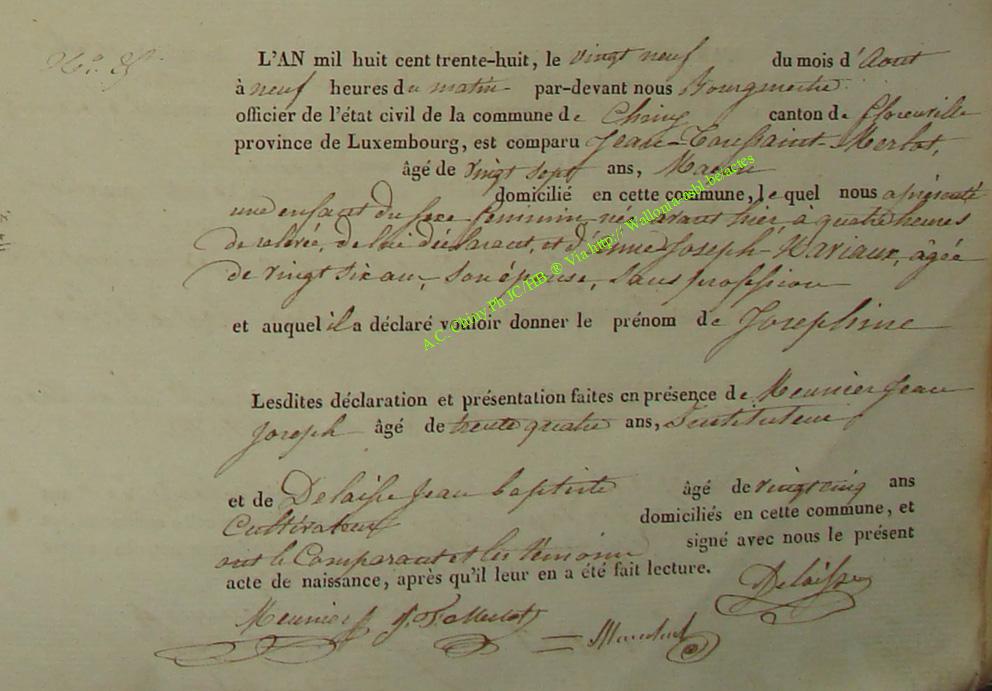 L'AN mil huit cent trente-huit, le vingt neuf du mois d'Aout
à neuf heures du matin par-devant nous Bourgmestre
officier de l'état civil de la commune de Chiny canton de Florenville
province de Luxembourg, est comparu Jean-Toussaint-Merlot,
âgé de vingt sept ans,
domicilié en cette commune, le quel nous a présenté
une enfant du sexe féminin née avant hier à quatre heures
de relevée, de lui déclarant, et d'Anne Joseph Hariaux, agée
de vingt six ans, son épouse, sans profession
et auquel il a déclaré vouloir donner le prénom de Josephine
Lesdites déclaration et présentation faites en présence de Meunier Jean
Joseph âgé de trente quatre ans, Instituteur
et de Delaisse Jean baptiste âgé de vingt cinq ans
Cultivateur
domiciliés en cette commune, et
ont le Comparant et les témoins signé avec nous le présent
acte de naissance, après qu'il leur en a été fait lecture.
Delaisse
Meunier J. T. Merlot
A.C. Chiny.Ph JC/HB. ® Via http:// Wallonia-asbl.be/actes